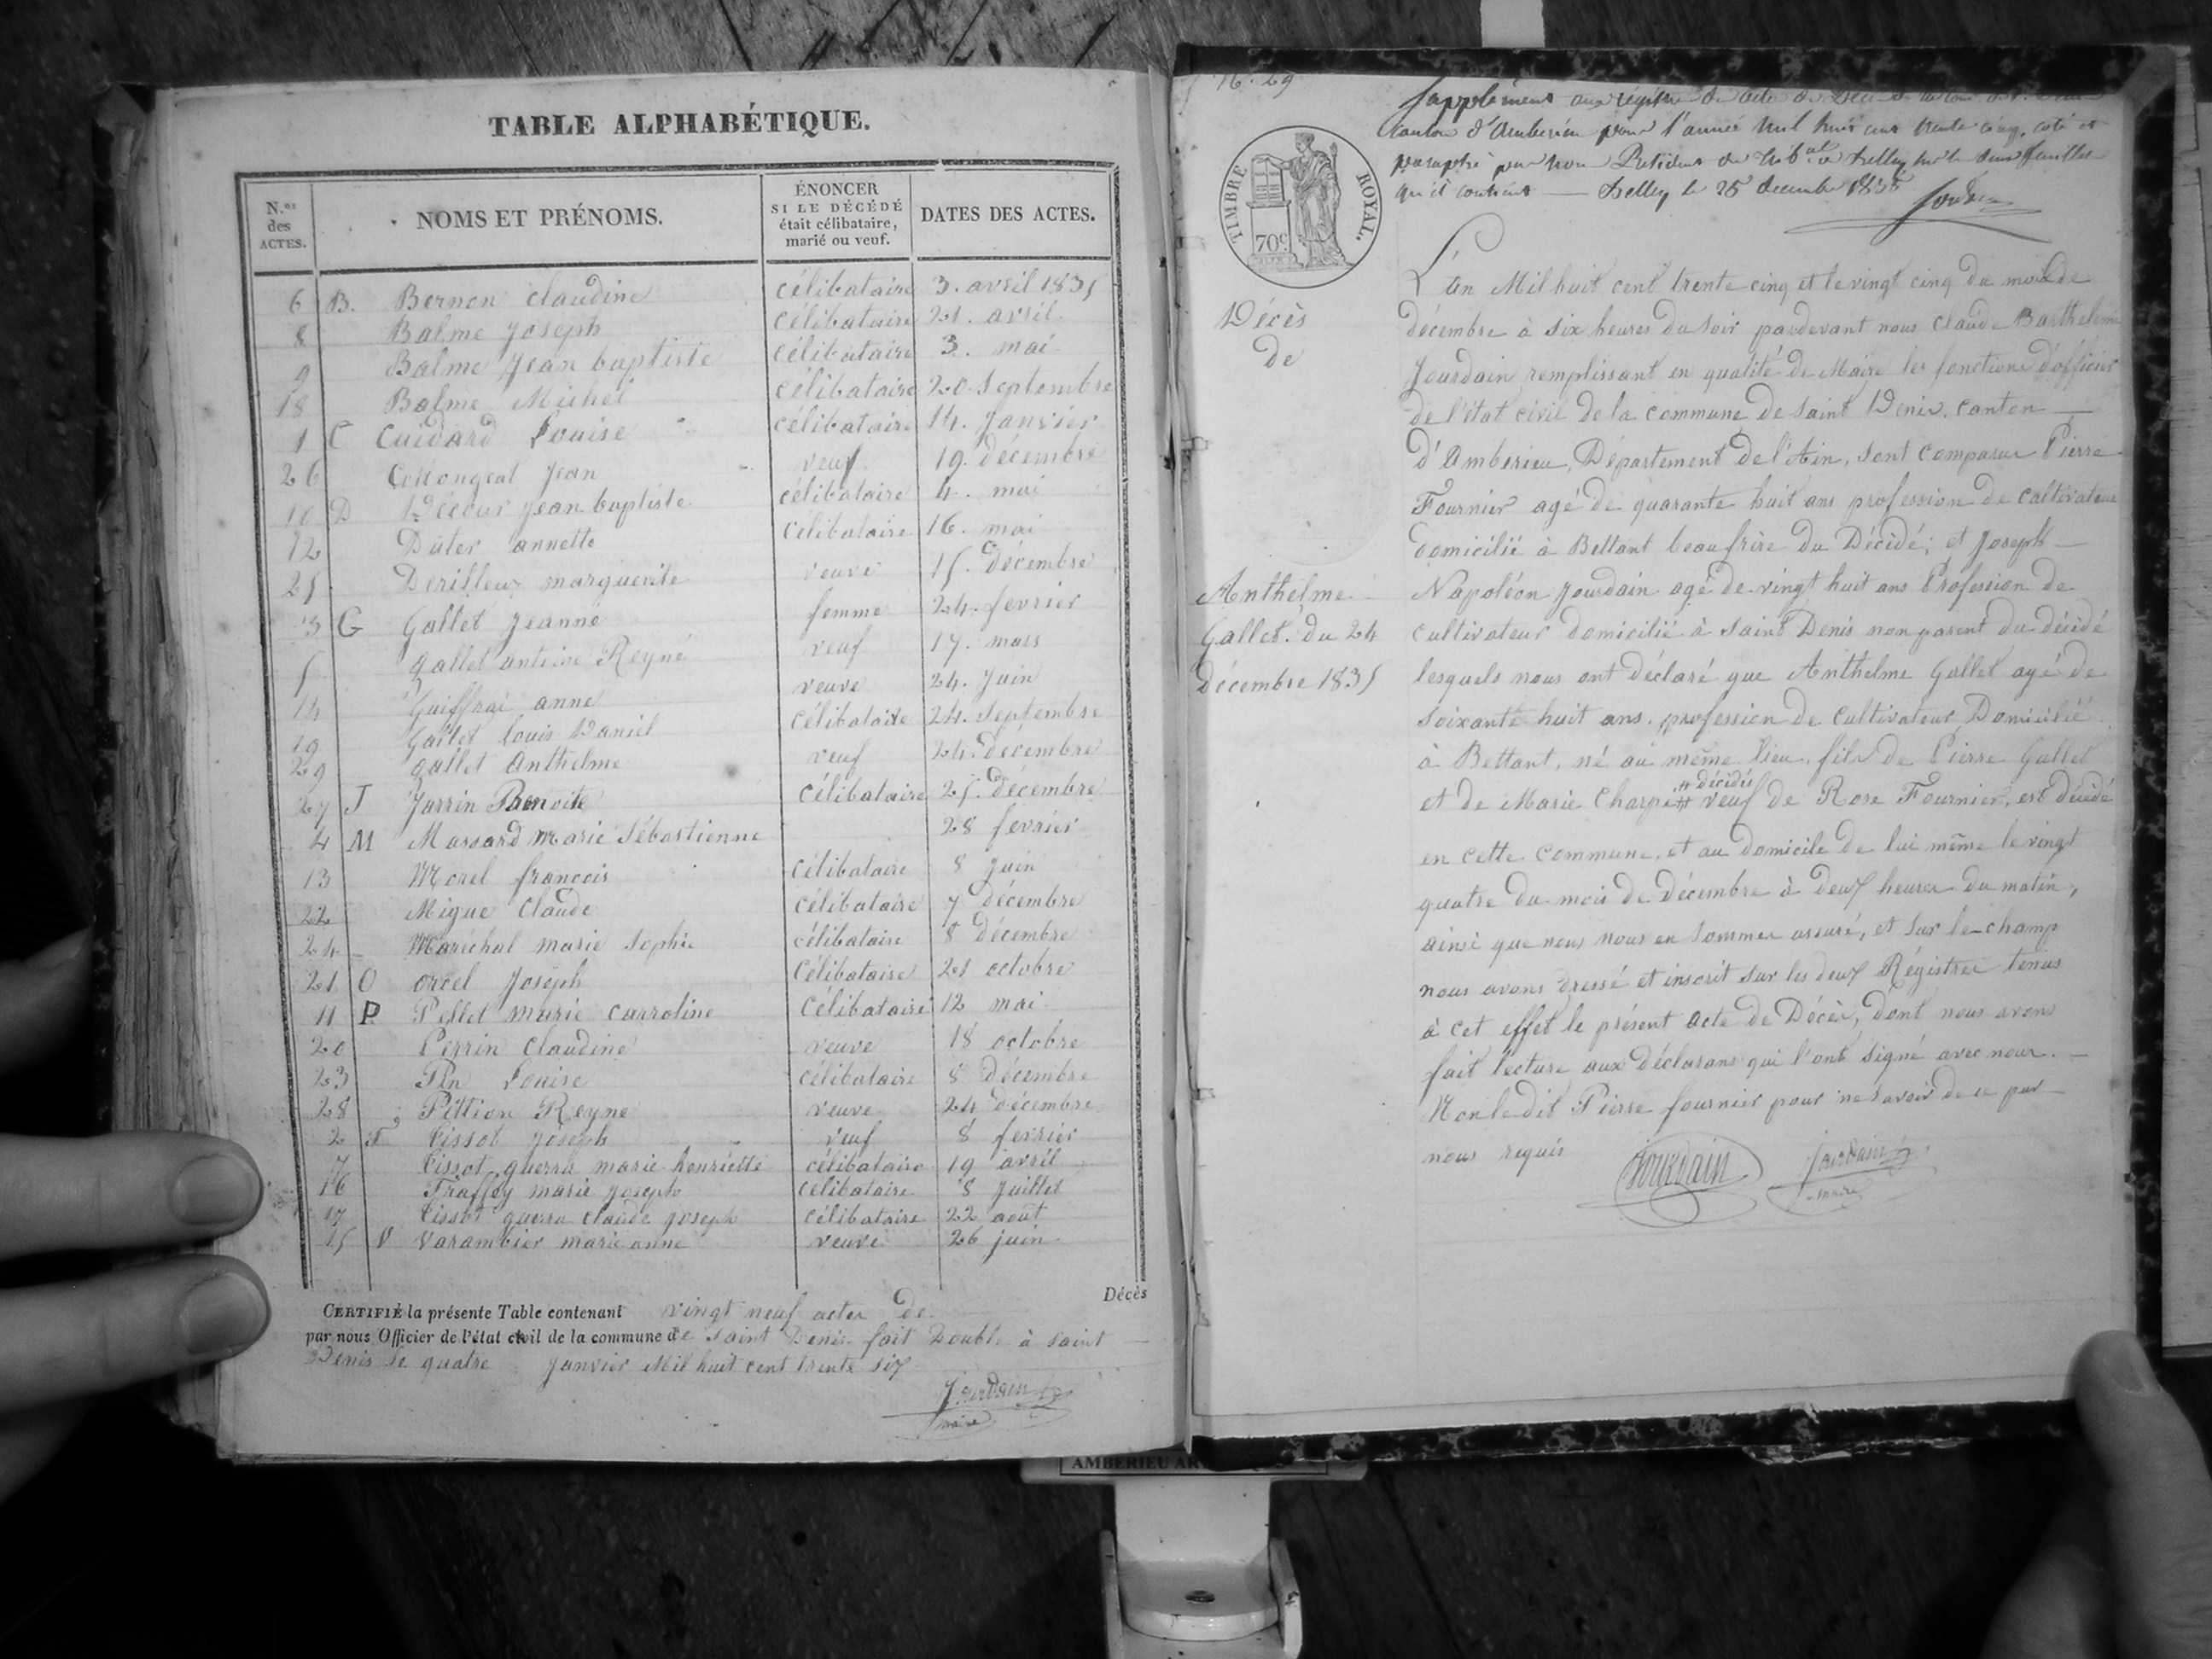 TABLE ALPHABÉTIQUE.
N.os des ACTES.
NOMS ET PRÉNOMS.
ÉNONCER SI LE DÉCÉDÉ était célibataire, marié ou veuf.
DATES DES ACTES.
6 B. Bernon claudine célibataire 3. avril 1835
8 Balme Joseph célibataire 21. avril
9 Balme Jean baptiste célibataire 3. mai
18 Balme Michel célibataire 20. Septembre
1 C Cuidard Louise célibataire 14. Janvier
26 Jean veuf 19. décembre
10 D Jean baptiste célibataire 4. mai
12 Duter annette célibataire 16. mai
25 Derilleux marguerite veuve 15. décembre
3 G Gallet Jeanne femme 24. fevrier
5 gallet antoine Reyné veuf 17. mars
14 Guiffrai anne veuve 24. Juin
19 Gallet louis Daniel célibataire 24. Septembre
29 gallet Anthelme veuf 24. décembre
27 J Jarrin Benoite célibataire 25. décembre
4 M Massard marie Sébastienne 28 fevrier
13 Morel francois célibataire 8 juin
22 Migue Claude célibataire 7 décembre
24 Maréchal marie Sophie célibataire 8 décembre
21 O orcel Joseph célibataire 21 octobre
11 P Pellet marie carroline célibataire 12 mai
20 Perrin Claudine veuve 18 octobre
23 Pin Louise célibataire 8 décembre
28 Pittion Reyne veuve 24 décembre
2 T Tissot Joseph veuf 8 fevrier
7 Tissot guerra marie henriette célibataire 19 avril
16 Traffey marie Joseph célibataire 8 Juillet
17 Tissot guerra claude Joseph célibataire 22 août
15 V Varambier marie anne veuve 26 juin
Décès
CERTIFIÉ la présente Table contenant vingt neuf actes de
par nous Officier de l'état civil de la commune de Saint Denis fait Double à Saint
Denis le quatre Janvier Mil huit cent trente six
Jourdain
maire
N°. 29
Supplément aux registre de acte de Décès
Canton d'Ambérieu pour l'année mil huit cent trente cinq, coté et
paraphé par nous Président du trib.al de Belley sur le deux feuilles
qu'il contient — Belley le 25 decembre 1835
TIMBRE ROYAL.
70c
Décès
de
Anthelme
Gallet. Du 24
décembre 1835
L'an Mil huit cent trente cinq et le vingt cinq du mois de
décembre à six heures du soir pardevant nous claude Barthelemi
Jourdain remplissant en qualité de Maire les fonctions d'officier
de l'état civil de la commune de Saint Denis. canton
d'Amberieu, Département de l'Ain, sont comparus Pierre
Fournier agé de quarante huit ans profession de cultivateur
domicilié à Bettant beaufrère du Décédé; et Joseph
Napoléon Jourdain agé de vingt huit ans Profession de
cultivateur domicilié à Saint Denis non parent du décédé
lesquels nous ont déclaré que Anthelme Gallet agé de
soixante huit ans. profession de cultivateur Domicilié
à Bettant, né au même lieu, fils de Pierre Gallet
# décédés
et de Marie Charpe # veuf de Rose Fournier, est décédé
en cette commune, et au domicile de lui même le vingt
quatre du mois de Décembre à deux heures du matin,
ainsi que nous nous en sommes assuré, et sur le-champ
nous avons dressé et inscrit sur les deux Régistres tenus
à cet effet le présent acte de Décès, dont nous avons
fait lecture aux déclarans qui l'ont signé avec nous.
Non ledit Pierre fournier pour ne savoir de ce par
nous requis
Jourdain
Jourdain
maire
AMBERIEU AR